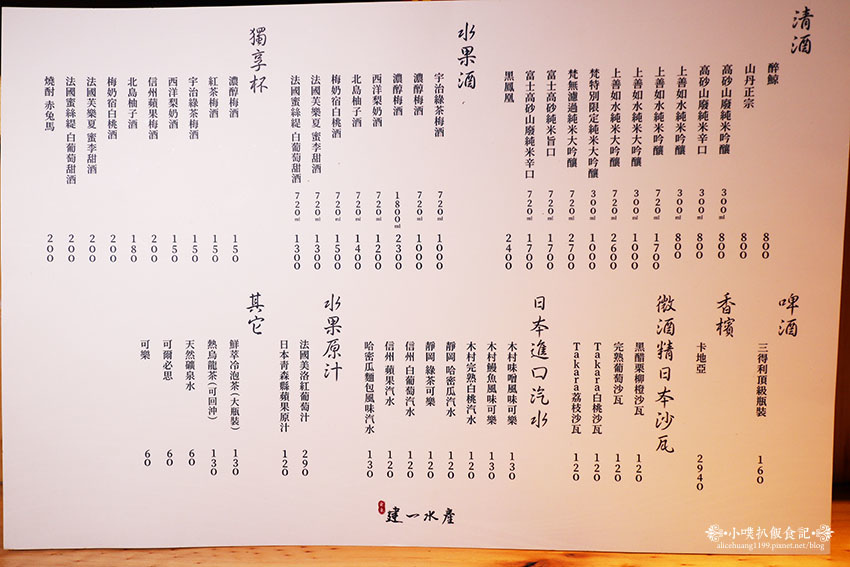 清酒
醉鯨 800
山丹正宗 800
高砂山廢純米吟釀 300ml 800
高砂山廢純米辛口 300ml 800
上善如水純米吟釀 300ml 800
上善如水純米吟釀 720ml 1700
上善如水純米大吟釀 300ml 1000
上善如水純米大吟釀 720ml 2600
梵特別限定純米大吟釀 300ml 1000
梵無濾過純米大吟釀 720ml 2700
富士高砂山廢純米旨口 720ml 1700
富士高砂山廢純米辛口 720ml 1700
黑鳳凰 2400
水果酒
宇治綠茶梅酒 720ml 1000
濃醇梅酒 720ml 1000
濃醇梅酒 1800ml 2300
西洋梨奶酒 720ml 1200
北島柚子酒 720ml 1400
梅奶宿白桃酒 720ml 1500
法國芙樂夏 蜜李甜酒 720ml 1300
法國蜜絲緹 白葡萄甜酒 720ml 1300
獨享杯
濃醇梅酒 150
紅茶梅酒 150
宇治綠茶梅酒 150
西洋梨奶酒 150
信州蘋果梅酒 200
北島柚子酒 180
梅奶宿白桃酒 200
法國芙樂夏 蜜李甜酒 200
法國蜜絲緹 白葡萄甜酒 200
燒酎 赤兔馬 200
啤酒
三得利頂級瓶裝 160
香檳
卡地亞 2940
微酒精日本沙瓦
黑醋栗柳橙沙瓦 120
完熟葡萄沙瓦 120
Takara白桃沙瓦 120
Takara荔枝沙瓦 120
日本進口汽水
木村味噌風味可樂 130
木村鰻魚風味可樂 130
木村完熟白桃汽水 120
靜岡 哈密瓜汽水 120
靜岡 綠茶可樂 120
信州 白葡萄汽水 120
信州 蘋果汽水 120
哈密瓜麵包風味汽水 130
水果原汁
法國美洛紅葡萄汁 290
日本青森縣蘋果原汁 120
其它
鮮萃冷泡茶(大瓶裝) 130
熱烏龍茶(可回沖) 130
天然礦泉水 60
可爾必思 60
可樂 60
建一水產
小噗扒飯食記
alicehuang1199.pixnet.net/blog